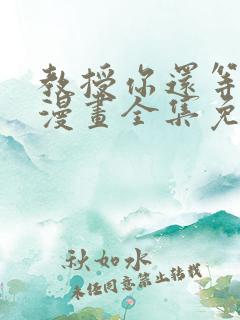 教授你還等
漫畫全集免
秋如水
未经同意禁止转载